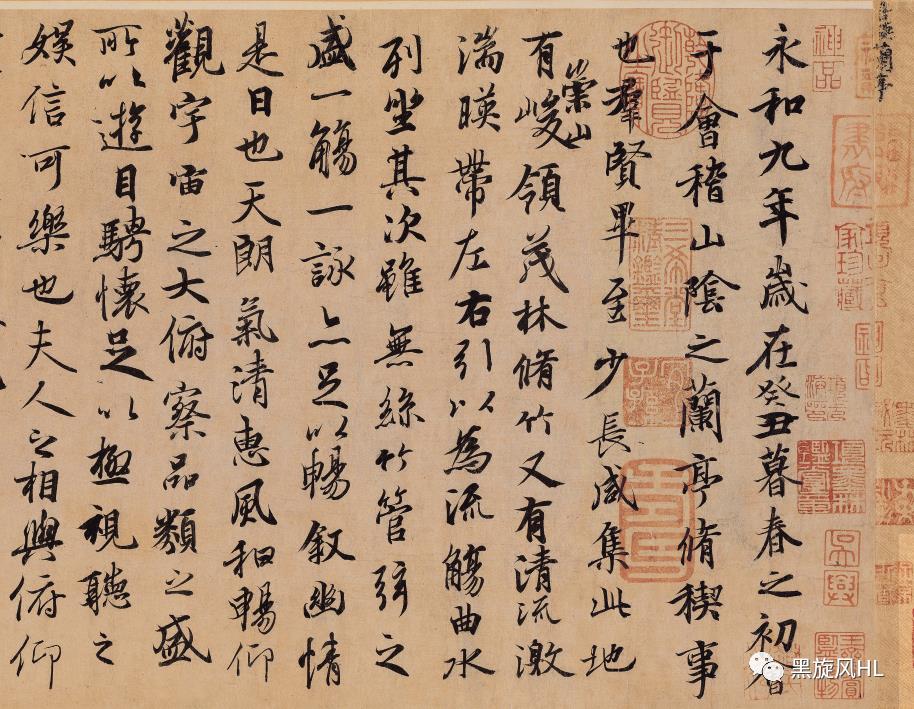 永和九年歲在癸丑暮春之初會
于會稽山陰之蘭亭脩稧事
也羣賢畢至少長咸集此地
有崇山峻領茂林脩竹又有清流激
湍暎帶左右引以為流觴曲水
列坐其次雖無絲竹管弦之
盛一觴一詠亦足以暢叙幽情
是日也天朗氣清惠風和暢仰
觀宇宙之大俯察品類之盛
所以遊目騁懷足以極視聽之
娛信可樂也夫人之相與俯仰
神品
家珍藏
吳興
黑旋风HL